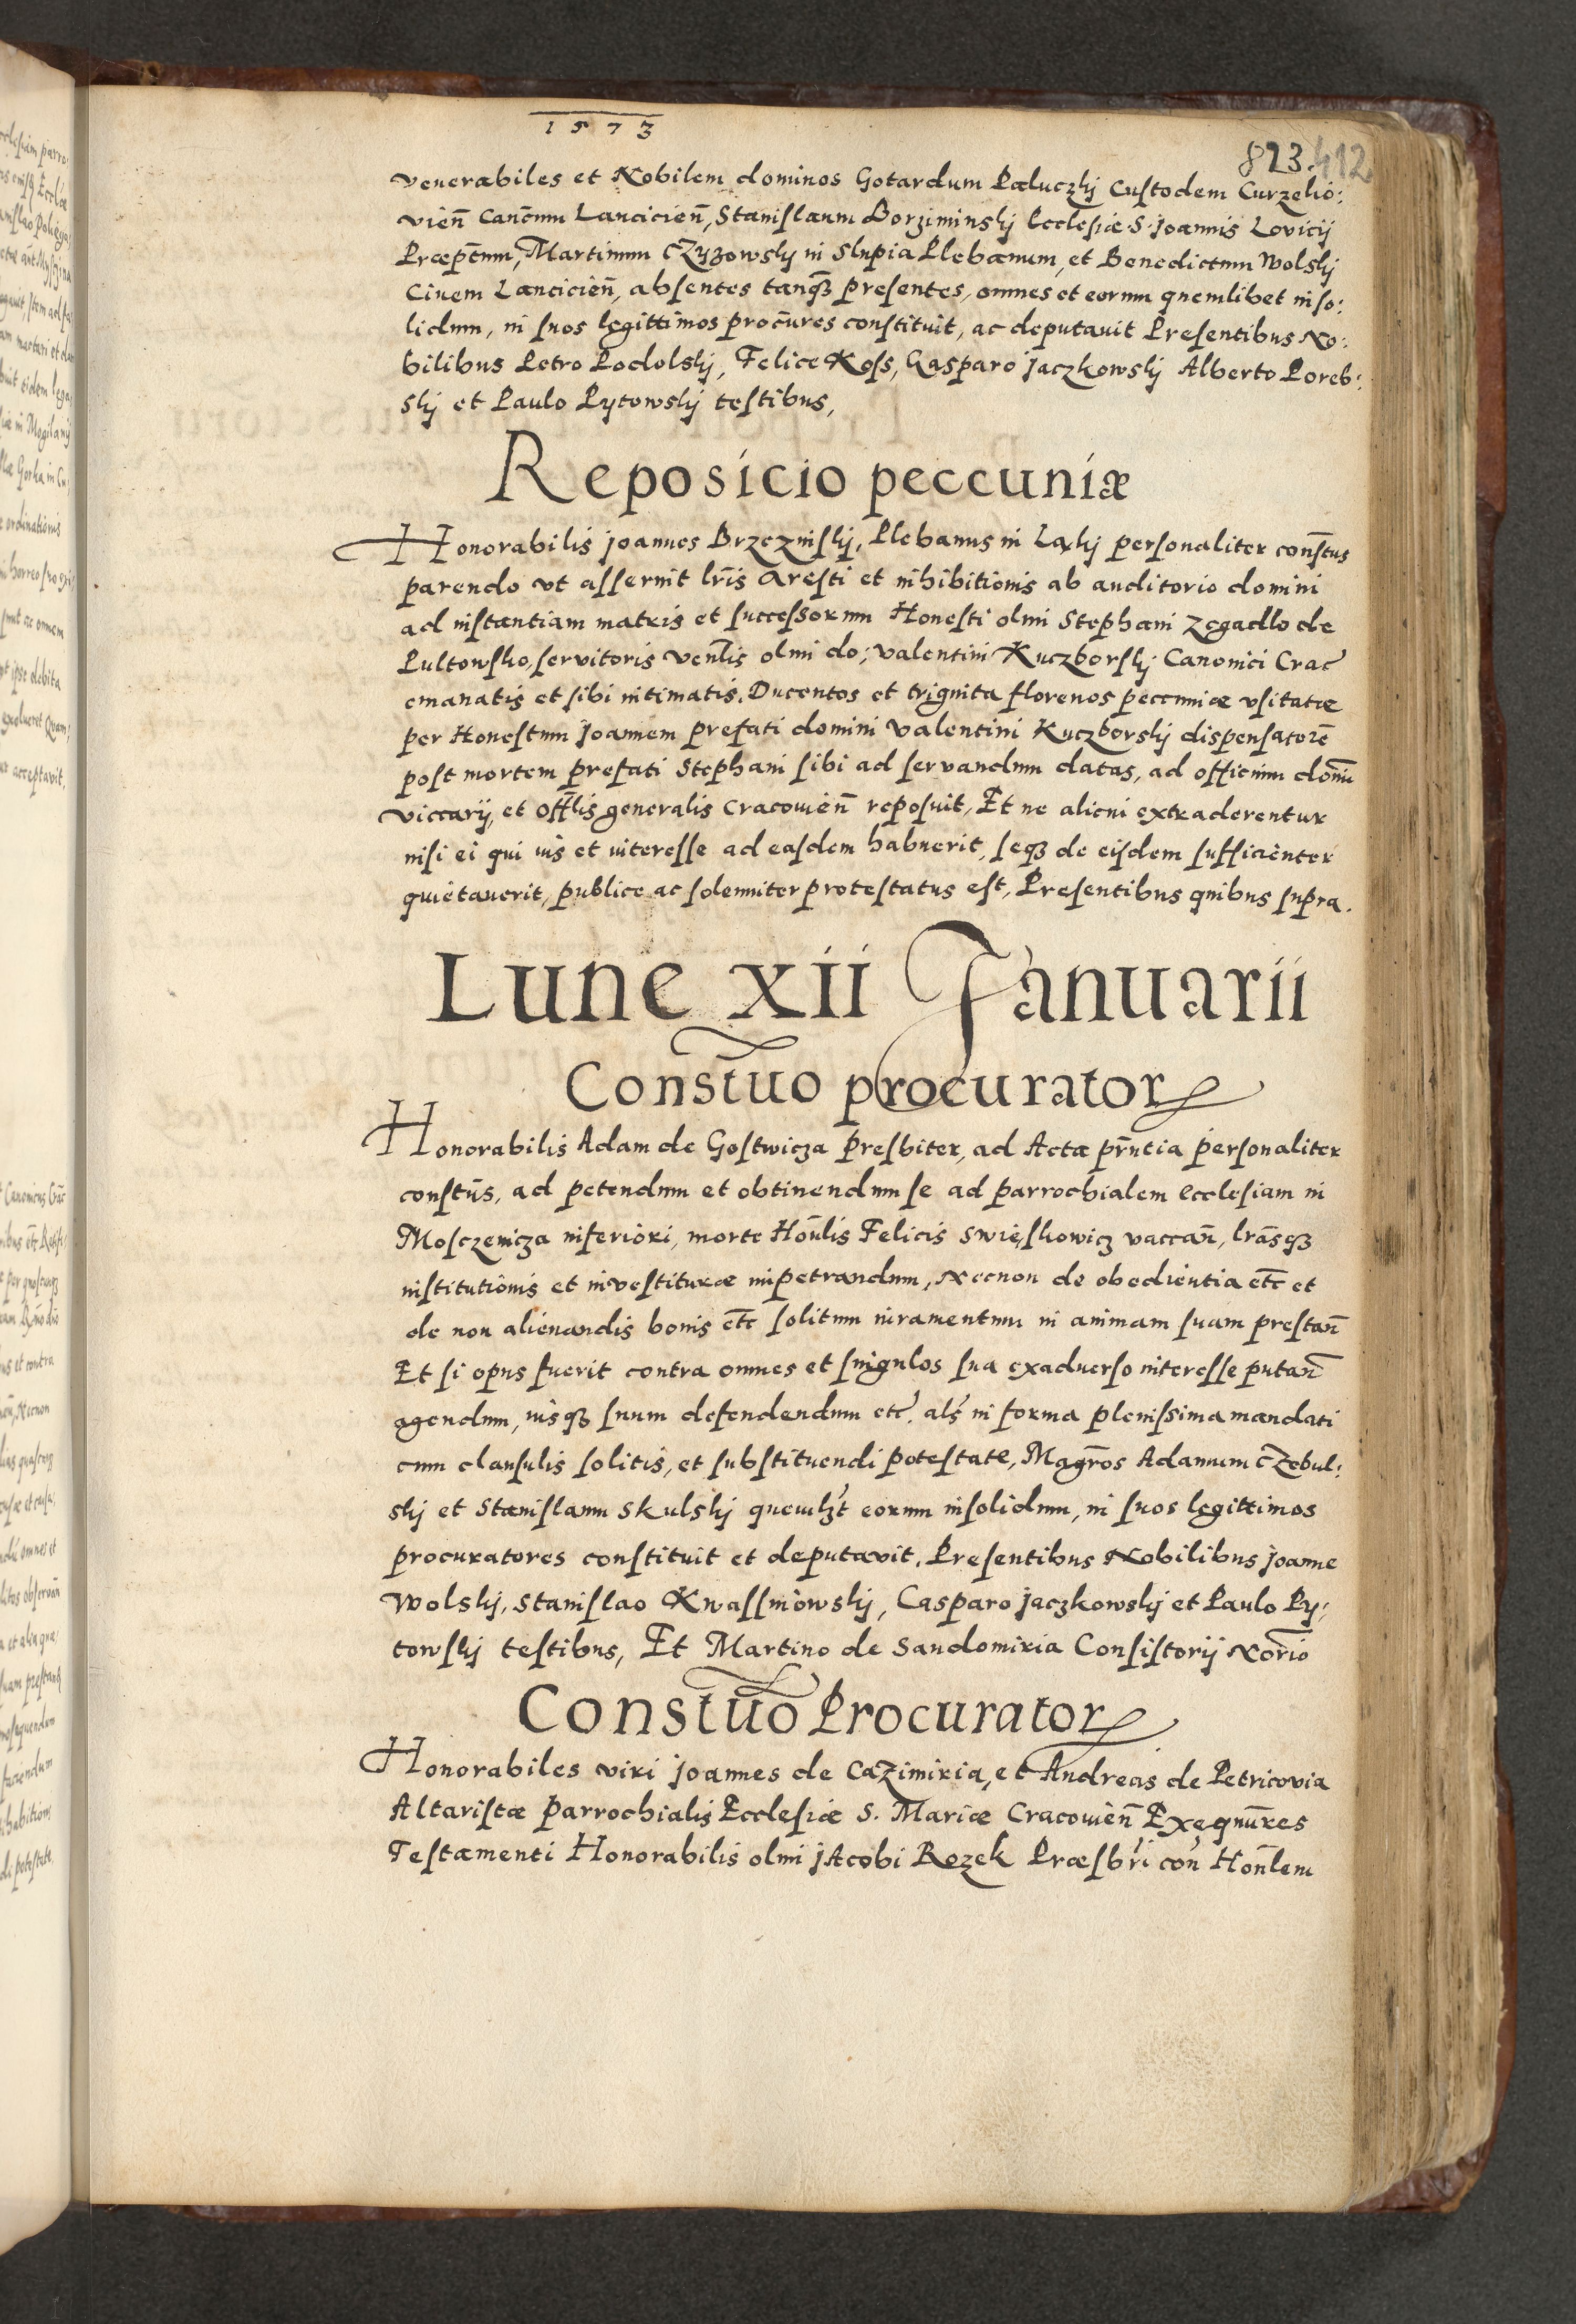 1573
823. 412
venerabiles et Nobilem dominos Gotardum Paluczkj Custodem Curzelio:
vien̄ Canc̄um Lancicien̄, Stanislaum Borziminskj Ecclesiæ S. Joannis Lovicij
Præpt̄um, Martinum CZyzowskj in Slupia Plebanum, et Benedictum Wolskj
Ciuem Lancicien̄, absentes tanqȝ presentes, omnes et eorum quemlibet inso:
lidum, in suos legittimos procūres constituit, ac deputauit Presentibus No:
bilibus Petro Podolskj, Felice Koss, Gasparo Jaczkowskj Alberto Poreb:
skj et Paulo Pytowskj testibus,
Reposicio peccuniæ
Honorabilis Joannes Brzezinskj, Plebanus in Ląkj personaliter const̄us
parendo vt asseruit lr̄is Aresti et inhibitionis ab auditorio domini
ad instantiam matris et successorum Honesti olmi Stephani Zegadllo de
Pultowsko, seruitoris venl̄is olmi do: Valentini Kuczborskj Canonici Crac̄
emanatis et sibi intimatis. Ducentos et triginta florenos peccuniæ vsitatæ
per Honestum Joannem prefati domini Valentini Kuczborskj dispensatorē
post mortem prefati Stephani sibi ad seruandum datas, ad officium domī
viccarij, et Offl̄is generalis Cracouien̄ reposuit, Et ne alicui extraderentur
nisi ei qui ius et interesse ad easdem habuerit, seqȝ de eisdem sufficienter
quietauerit, publice ac solenniter protestatus est, Presentibus quibus supra.
Lune xii Januarii
Const̄uo procurator
Honorabilis Adam de Gostwicza Presbiter, ad Acta pr̄ntia personaliter
constūs, ad petendum et obtinendum se ad parrochialem ecclesiam in
Mosczenicza inferiori, morte Hon̄lis Felicis Swieskowicz vaccan̄, lrāsqȝ
institutionis et inuestituræ impetrandum, Necnon de obedientia etc̄ et
de non alienandis bonis etc̄ solitum iuramentum in animam suam prestan̄
Et si opus fuerit contra omnes et singulos sua exaduerso interesse putan̄
agendum, iusqȝ suum defendendum etc̄. als̄ in forma plenissima mandati
cum clausulis solitis, et substituendi potestate, Magr̄os Adamum CZebul:
skj et Stanislaum Skulskj quemlȝt eorum insolidum, in suos legittimos
procuratores constituit et deputavit. Presentibus Nobilibus Joanne
Wolskj, Stanislao Kwassniowskj, Casparo Jaczkowskj et Paulo Py:
towskj testibus, Et Martino de Sandomiria Consistorij Nor̄io
Const̄uo Procurator
Honorabiles viri Joannes de Cazimiria, et Andreas de Petricovia
Altaristæ Parrochialis Ecclesiæ S. Mariæ Cracouien̄ Exequūres
Testamenti Honorabilis olmi Jacobi Rozek Præsbr̄i con̄ Hon̄lem